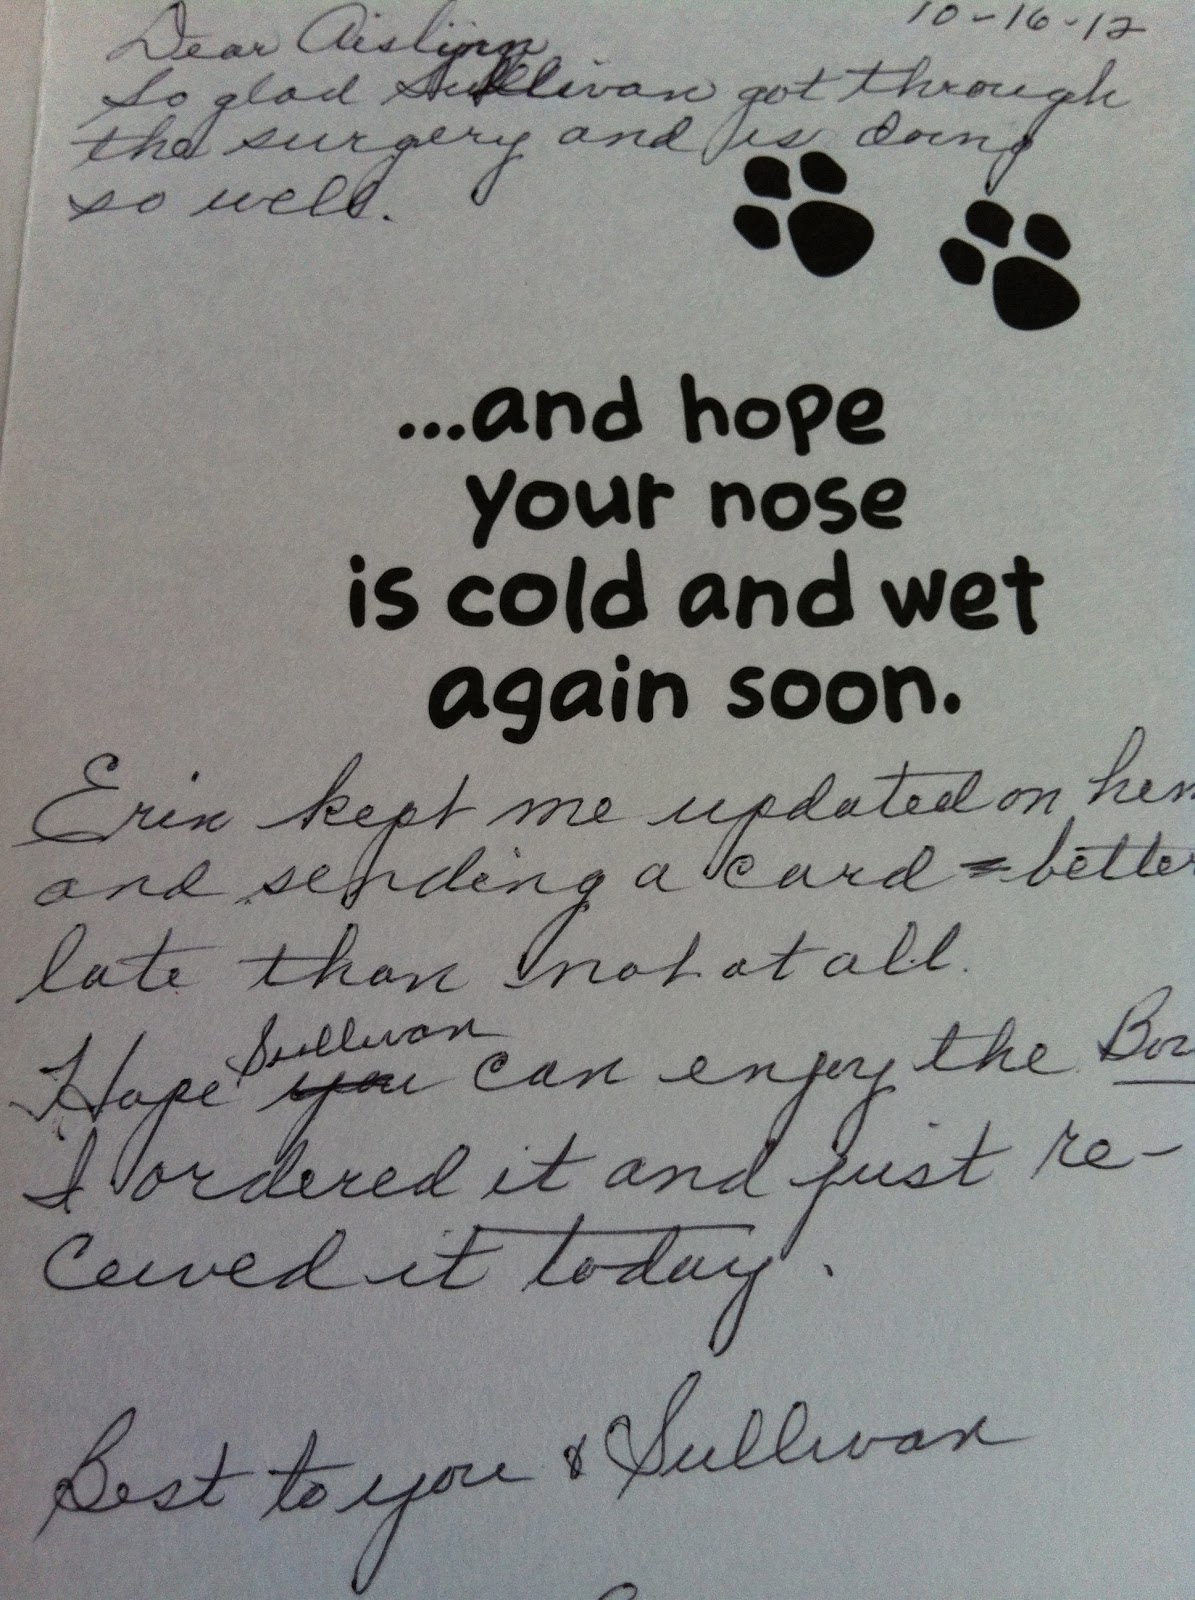 10-16-12
Dear Aislinn
So glad Sullivan got through
the surgery and is doing
so well.
...and hope
your nose
is cold and wet
again soon.
Erin kept me updated on
and sending a card = better
late than not at all.
Sullivan
Hope you can enjoy the
I ordered it and just re-
ceived it today.
Best to you & Sullivan